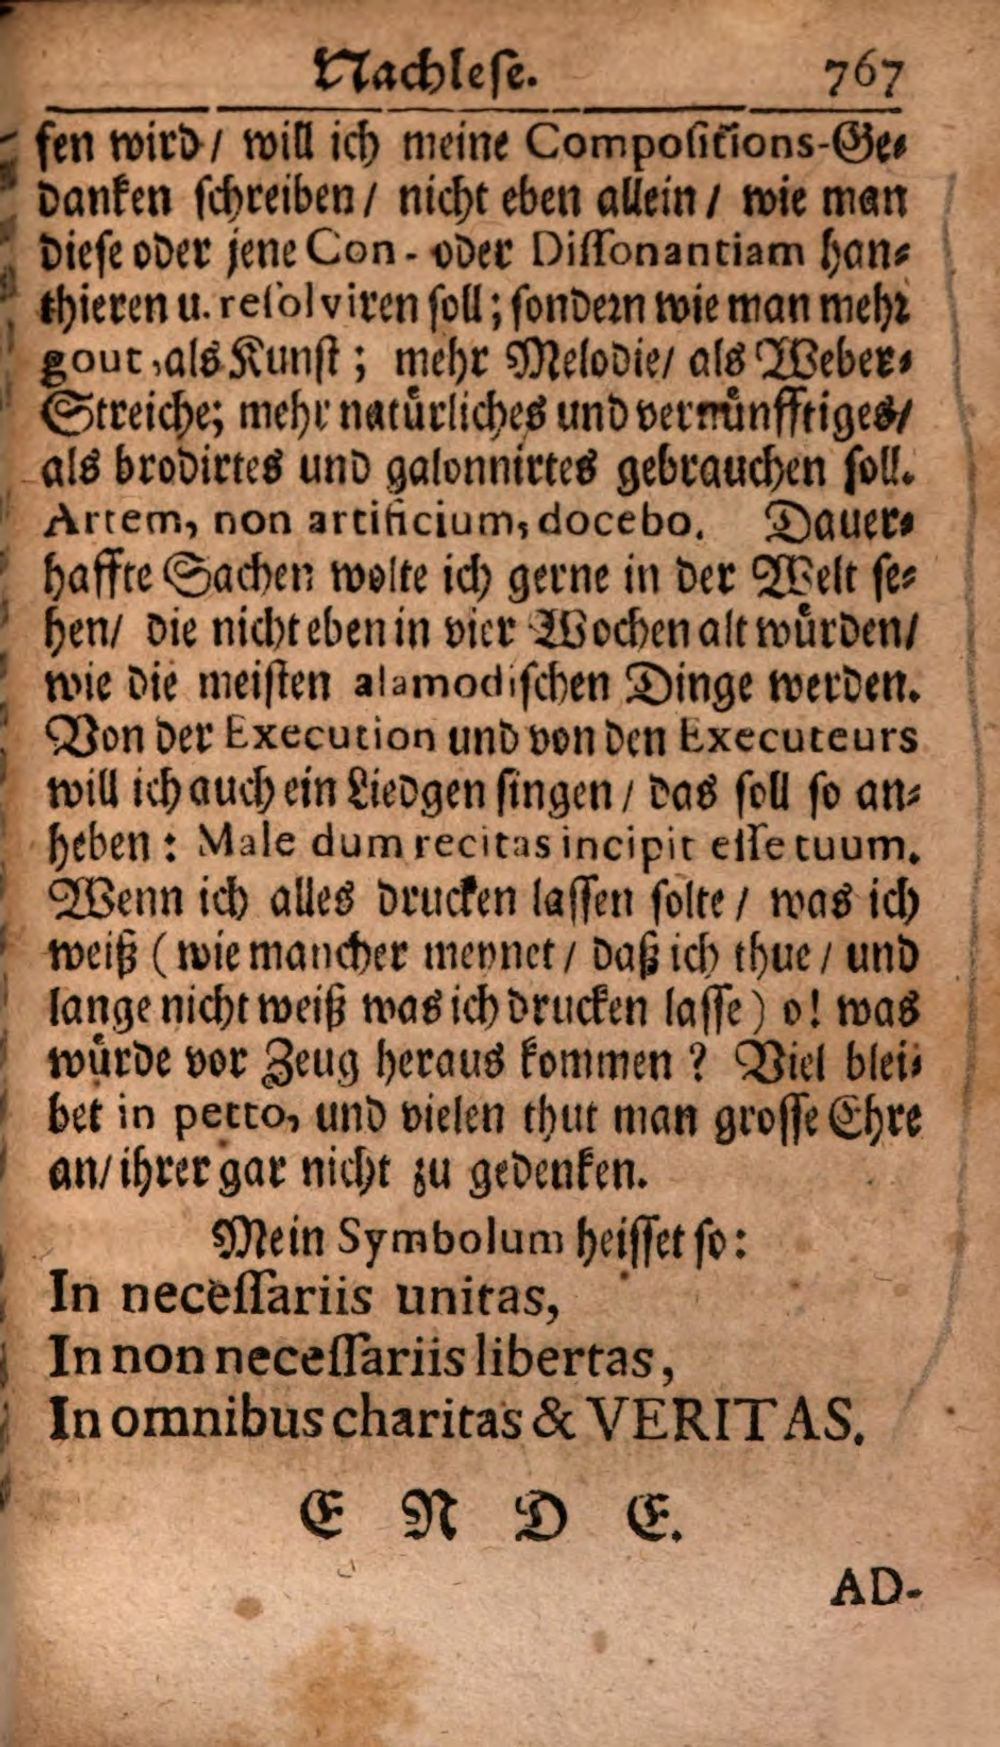 Nachlese. 767
sen wird/ will ich meine Compositions-Ge-
danken schreiben/ nicht eben allein/ wie man
diese oder jene Con- oder Dissonantiam han-
thieren u. resolviren soll; sondern wie man mehr
gout, als Kunst; mehr Melodie/ als Weber-
Streiche; mehr natürliches und vernünfftiges/
als brodirtes und galonnirtes gebrauchen soll.
Artem, non artificium, docebo. Dauer-
haffte Sachen wolte ich gerne in der Welt se-
hen/ die nicht eben in vier Wochen alt würden/
wie die meisten alamodischen Dinge werden.
Von der Execution und von den Executeurs
will ich auch ein Liedgen singen/ das soll so an-
heben: Male dum recitas incipit esse tuum.
Wenn ich alles drucken lassen solte/ was ich
weiß (wie mancher meynet/ daß ich thue/ und
lange nicht weiß was ich drucken lasse) o! was
würde vor Zeug heraus kommen? Viel blei-
bet in petto, und vielen thut man grosse Ehre
an/ ihrer gar nicht zu gedenken.
Mein Symbolum heisset so:
In necessariis unitas,
In non necessariis libertas,
In omnibus charitas & VERITAS.
E N D E.
AD-